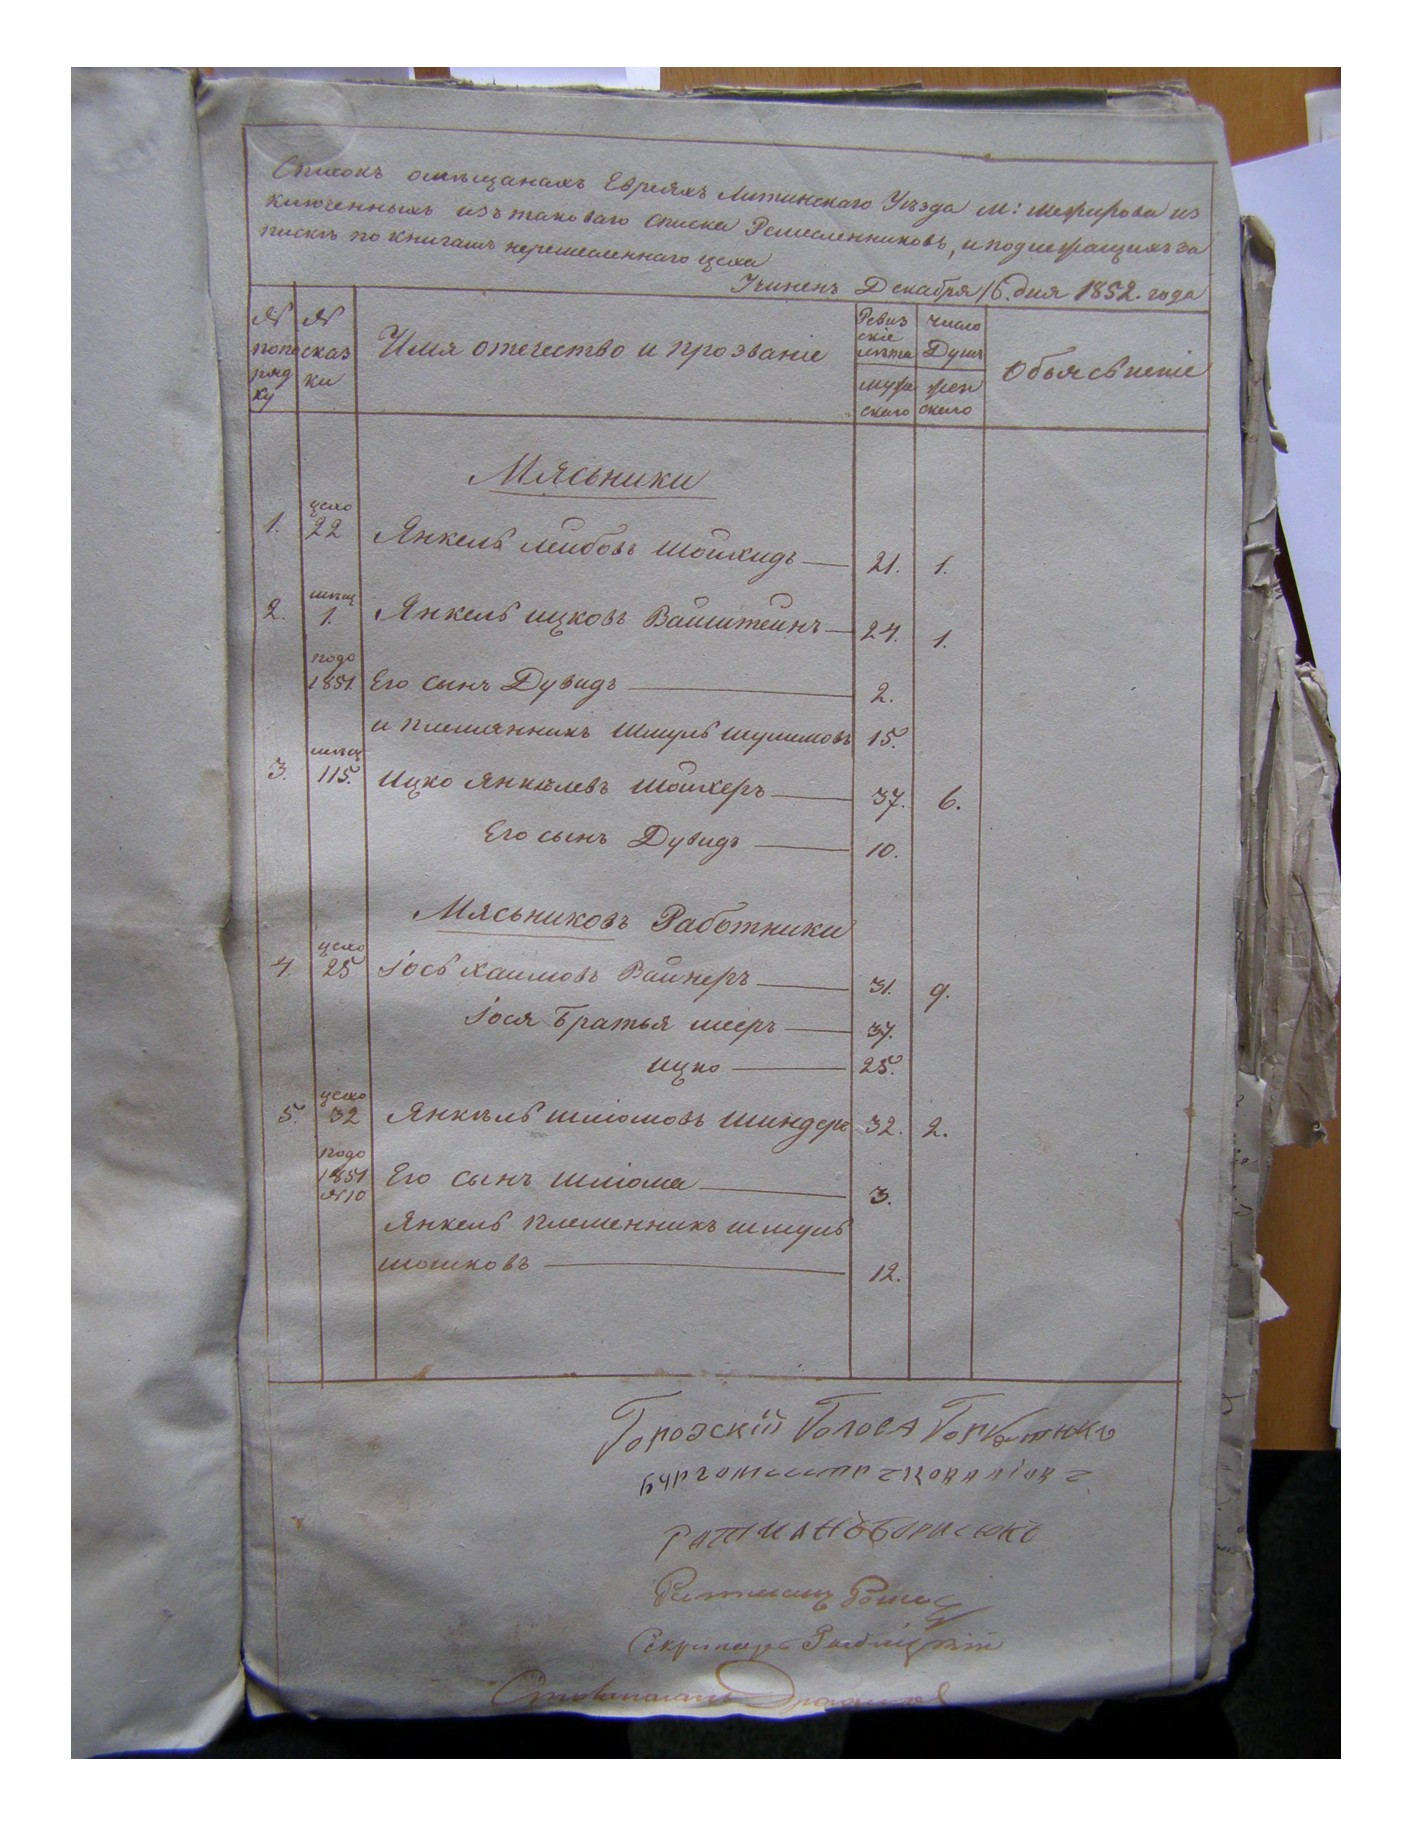 Списокъ омещанахъ Евреяхъ Литинскаго Уезда М: Межирова из
ключенныхъ изъ таковаго списка Ремесленниковъ, и подлежащихъ за
писке по книгамъ неремесленнаго цеха
Учиненъ Декабря 16. дня 1852. года
№ попо ряд ку
№ сказ ки
Имя отечество и прозваніе
Ревиз скіе лета
число Душъ
муже скаго
жен скаго
Объясненіе
Мясьники
1. цехо 22 Янкель Лейбовъ Шойхидъ 21. 1.
2. мещ 1. Янкель Ицковъ Вайнштейнъ 24. 1.
подо 1851 Его сынъ Дувидъ 2.
и племянникъ Шмуль Шулимовъ 15.
3. мещ 115. Ицко Янкелевъ Шойхеръ 37. 6.
Его сынъ Дувидъ 10.
Мясьниковъ Работники
4. цехо 25 Іось Хаимовъ Вайнеръ 31. 9.
Іося Братья Мееръ 37.
Ицко 25.
5. цехо 32 Янкель Шлiомовъ Шиндеръ 32. 2.
подо 1851 №10 Его сынъ Шлiома 3.
Янкель племенникъ Шмуль
Мошковъ 12.
Городскій Голова
Бургомистръ
Ратманъ Борисюкъ
Ратманъ
Секретарь